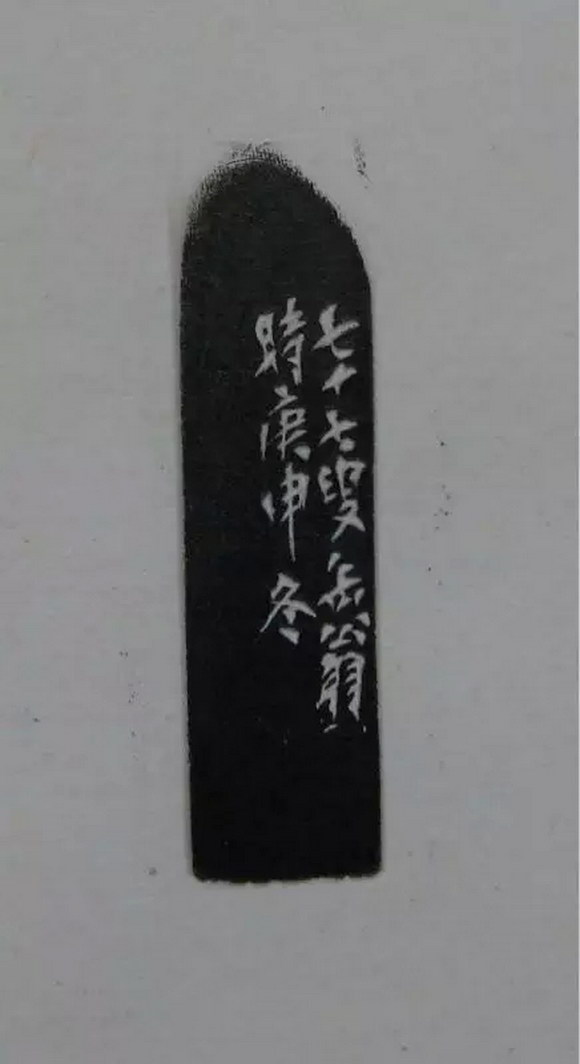 七十七叟缶翁
時庚申冬